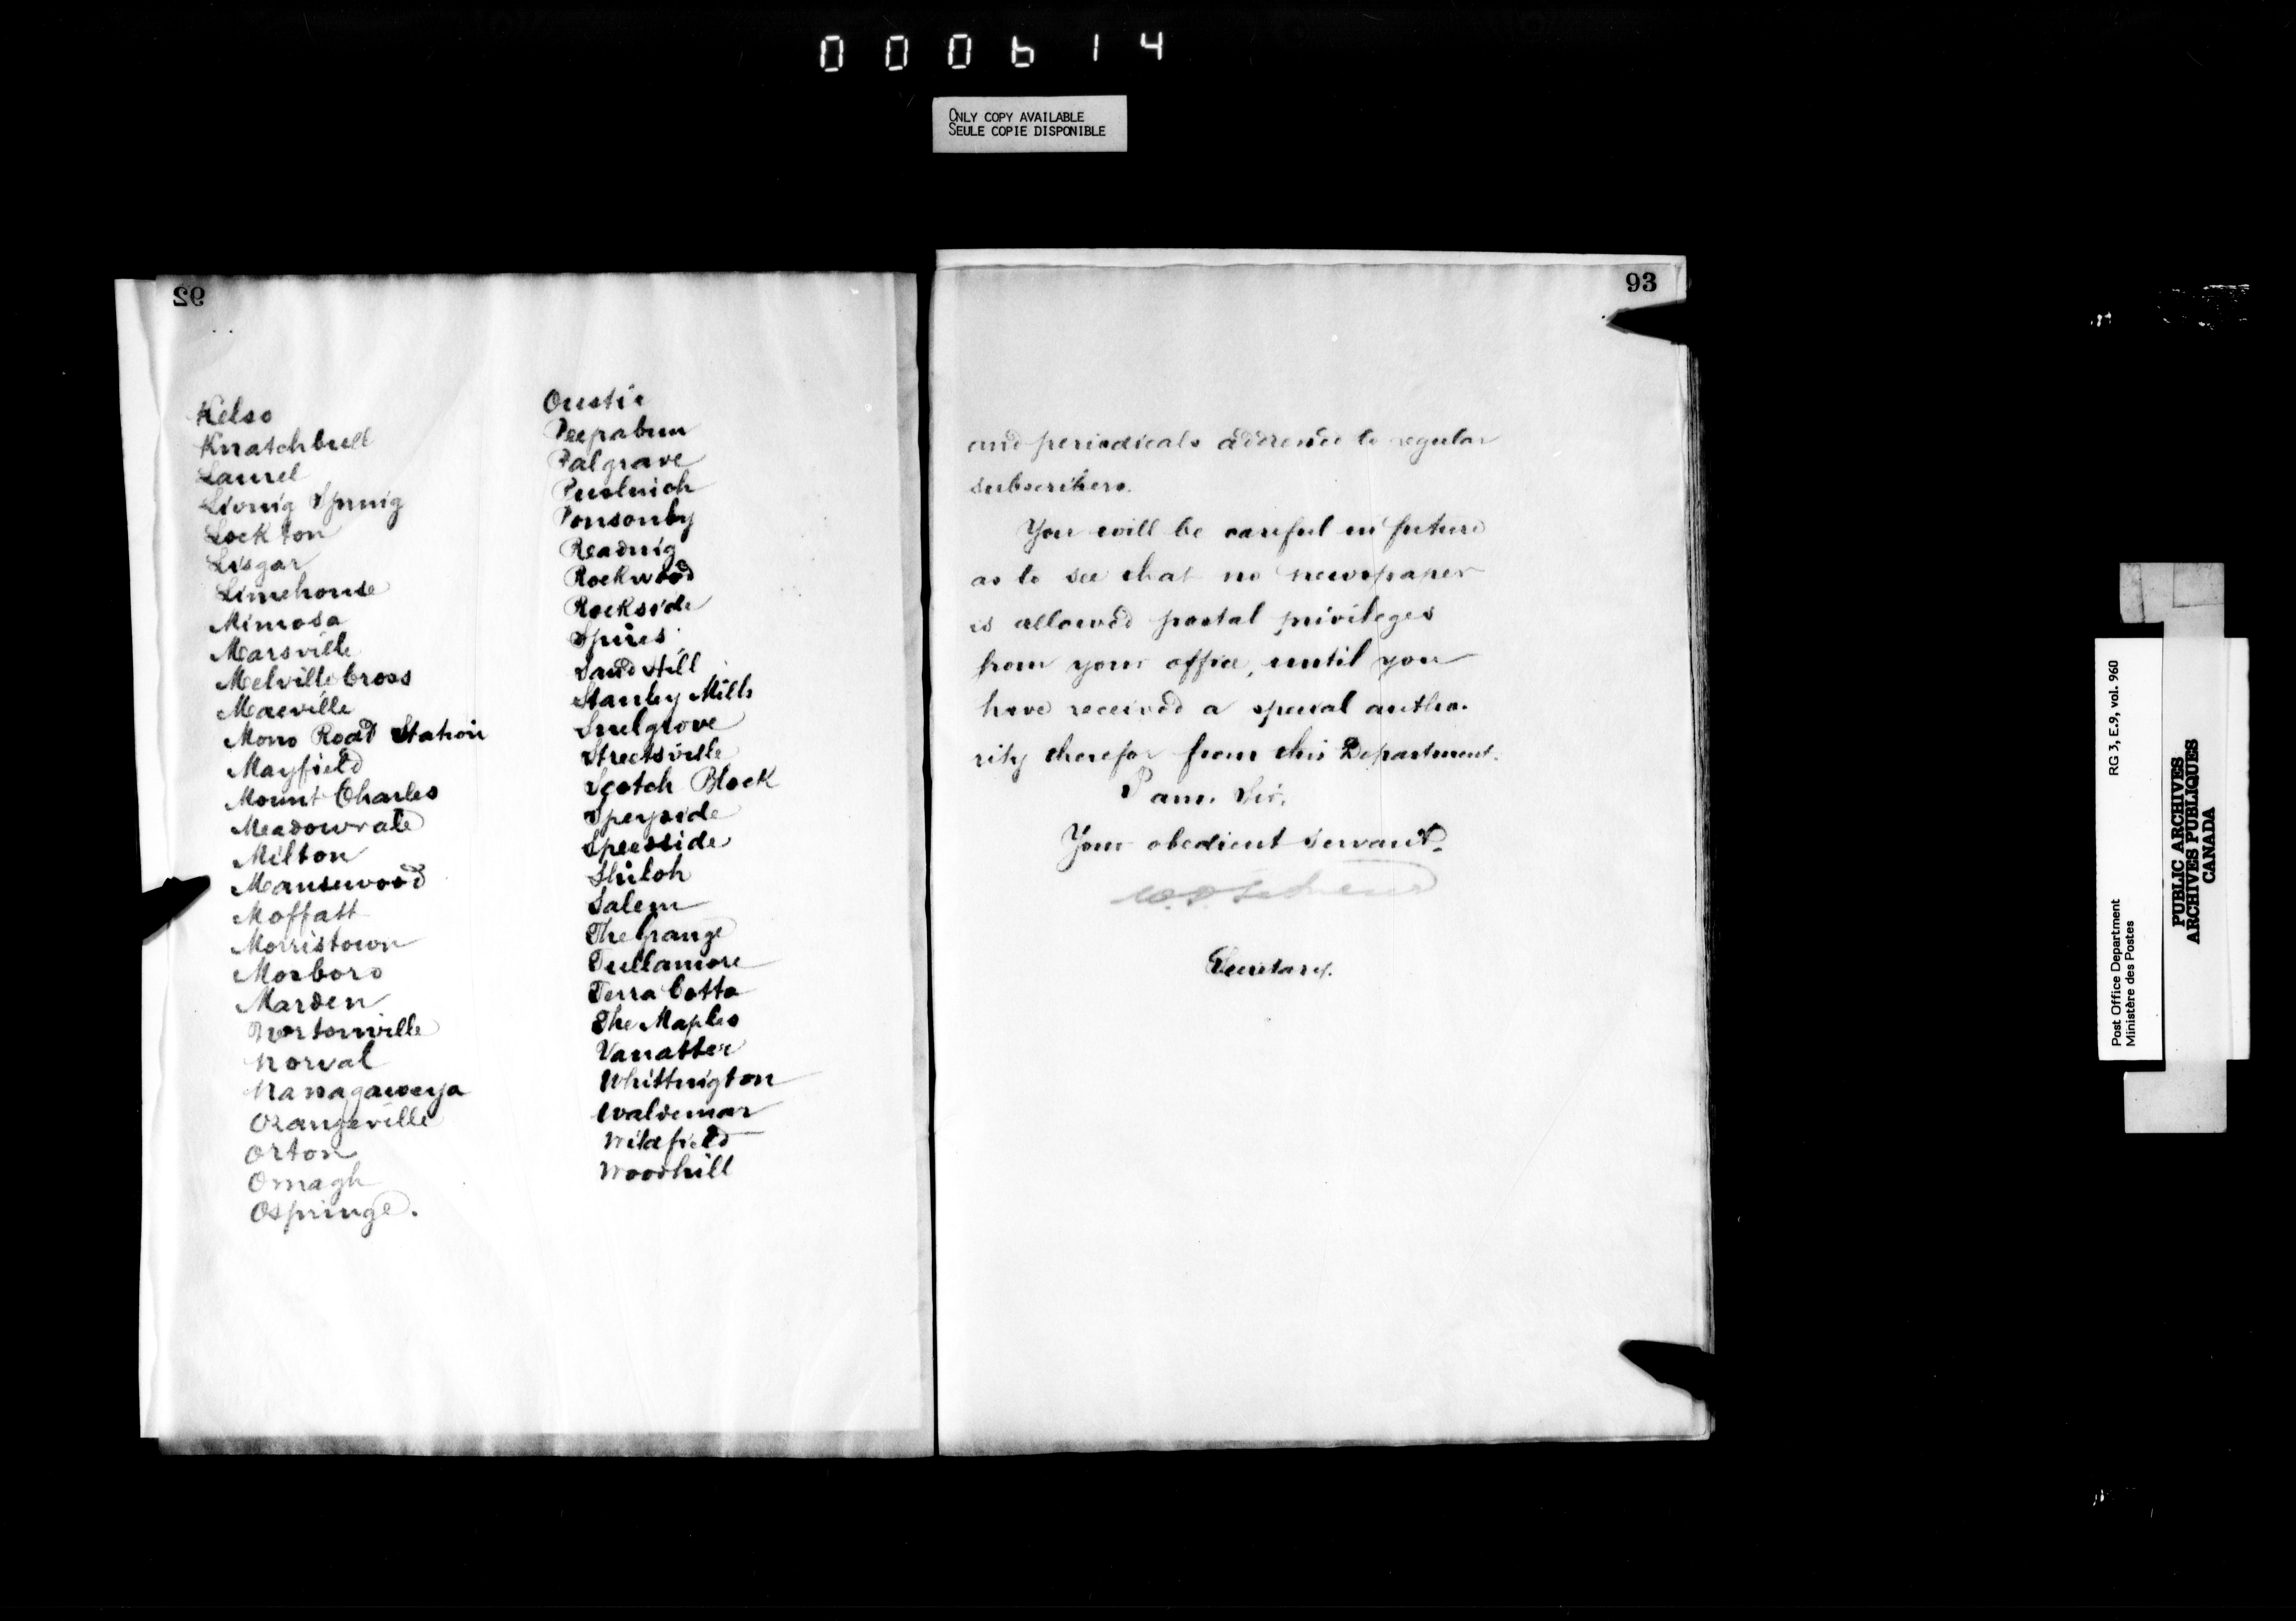 000614
ONLY COPY AVAILABLE
SEULE COPIE DISPONIBLE
92
Kelso
Knatchbull
Laurel
Living Spring
Lockton
Lisgar
Limehouse
Mimosa
Marsville
Melville Cross
Macville
Mono Road Station
Mayfield
Mount Charles
Meadowvale
Milton
Mansewood
Moffatt
Morristown
Mosboro
Marden
Nortonville
Norval
Nassagaweya
Orangeville
Orton
Omagh
Ospringe.
Oustic
Peepabun
Palgrave
Puslinch
Ponsonby
Reading
Rockwood
Rockside
Spires
Sand Hill
Stanley Mills
Snelgrove
Streetsville
Scotch Block
Speyside
Speedside
Shiloh
Salem
The Grange
Tullamore
Terra Cotta
The Maples
Vanatter
Whittington
Waldemar
Wildfield
Woodhill
93
and periodicals addressed to regular
subscribers.
You will be careful in future
as to see that no newspaper
is allowed postal privileges
from your office, until you
have received a special autho-
rity therefor from this Department.
I am, Sir,
Your obedient Servant.
Secretary.
Post Office Department RG 3, E.9, vol. 960
Ministère des Postes
PUBLIC ARCHIVES
ARCHIVES PUBLIQUES
CANADA